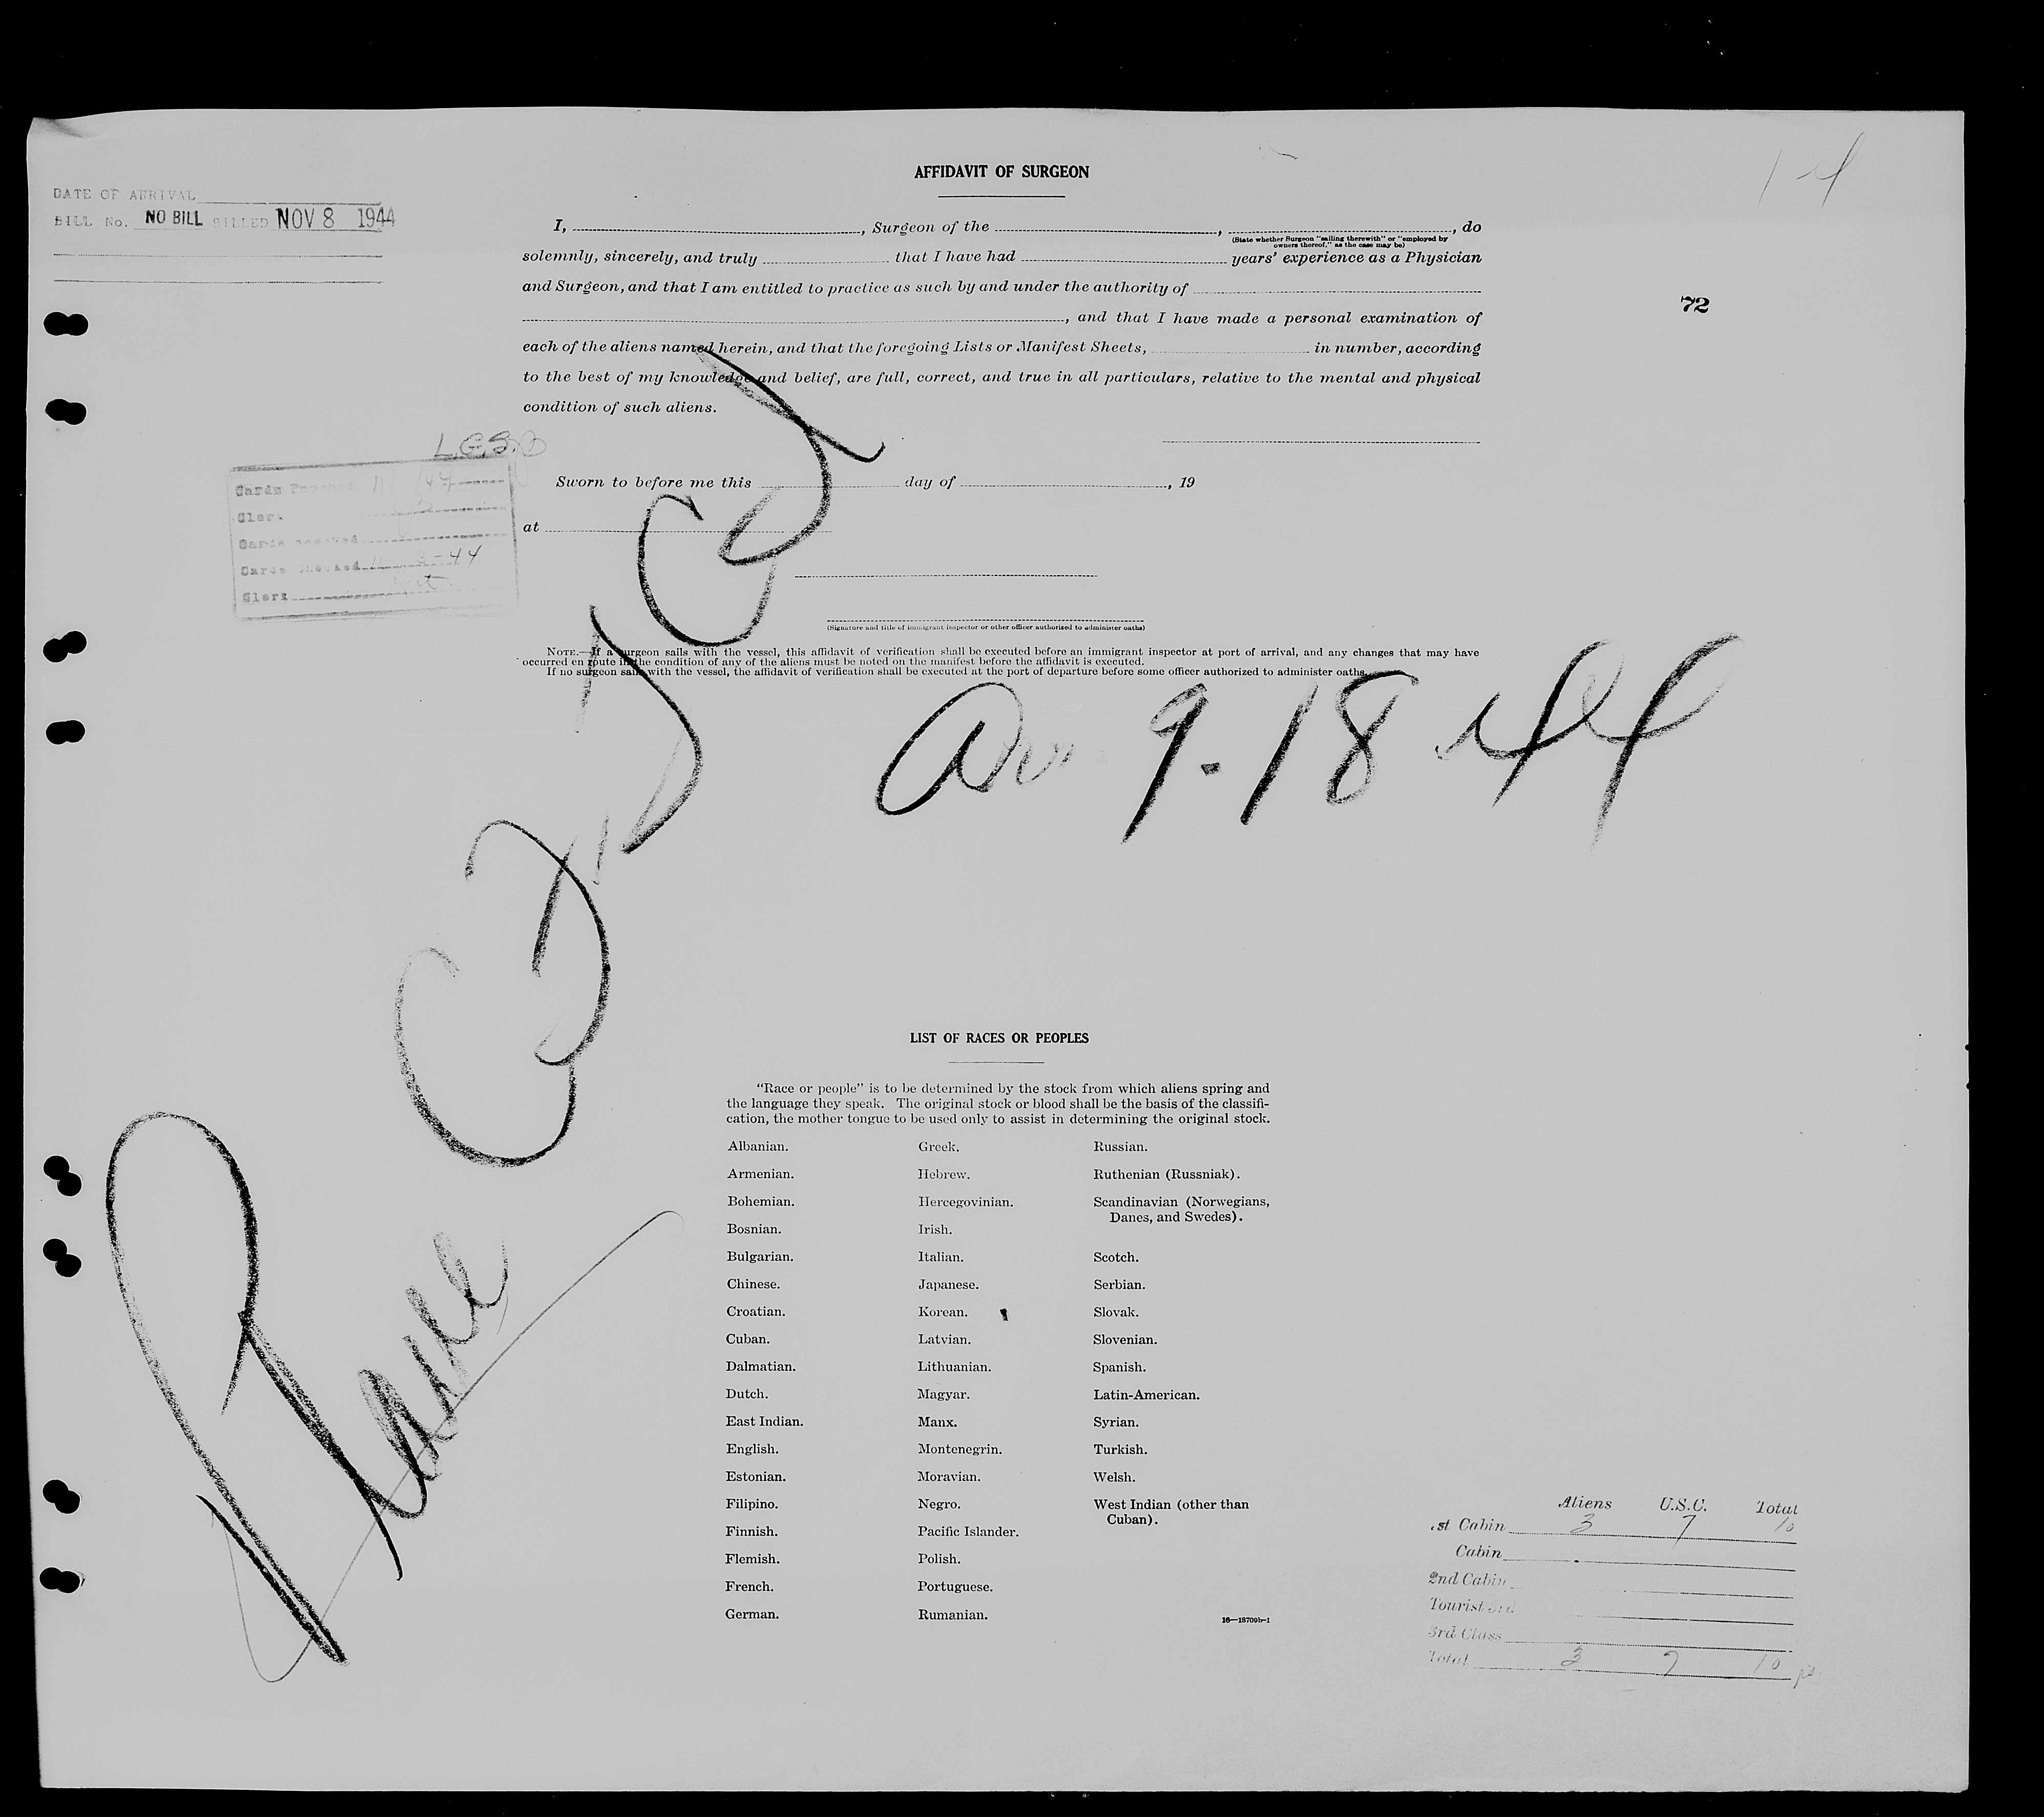 AFFIDAVIT OF SURGEON
DATE OF ARRIVAL
BILL No. NO BILL BILLED NOV 8 1944
I, , Surgeon of the , , do
(State whether Surgeon "sailing therewith" or "employed by
owners thereof," as the case may be)
solemnly, sincerely, and truly that I have had years' experience as a Physician
and Surgeon, and that I am entitled to practice as such by and under the authority of
, and that I have made a personal examination of
each of the aliens named herein, and that the foregoing Lists or Manifest Sheets, in number, according
to the best of my knowledge and belief, are full, correct, and true in all particulars, relative to the mental and physical
condition of such aliens.
72
L.G.S.
Cards
Clerk
Cards
Cards Checked 44
Clerk
Sworn to before me this day of , 19
at
(Signature and title of immigrant inspector or other officer authorized to administer oaths)
NOTE.—If a surgeon sails with the vessel, this affidavit of verification shall be executed before an immigrant inspector at port of arrival, and any changes that may have
occurred en route in the condition of any of the aliens must be noted on the manifest before the affidavit is executed.
If no surgeon sails with the vessel, the affidavit of verification shall be executed at the port of departure before some officer authorized to administer oaths.
Arr 9-18 44
Plane
LIST OF RACES OR PEOPLES
"Race or people" is to be determined by the stock from which aliens spring and
the language they speak. The original stock or blood shall be the basis of the classifi-
cation, the mother tongue to be used only to assist in determining the original stock.
Albanian.
Armenian.
Bohemian.
Bosnian.
Bulgarian.
Chinese.
Croatian.
Cuban.
Dalmatian.
Dutch.
East Indian.
English.
Estonian.
Filipino.
Finnish.
Flemish.
French.
German.
Greek.
Hebrew.
Hercegovinian.
Irish.
Italian.
Japanese.
Korean.
Latvian.
Lithuanian.
Magyar.
Manx.
Montenegrin.
Moravian.
Negro.
Pacific Islander.
Polish.
Portuguese.
Rumanian.
Russian.
Ruthenian (Russniak).
Scandinavian (Norwegians,
Danes, and Swedes).
Scotch.
Serbian.
Slovak.
Slovenian.
Spanish.
Latin-American.
Syrian.
Turkish.
Welsh.
West Indian (other than
Cuban).
16—18709b-1
Aliens U.S.C. Total
1st Cabin 3 7 10
Cabin
2nd Cabin
Tourist 3rd
3rd Class
Total 3 7 10